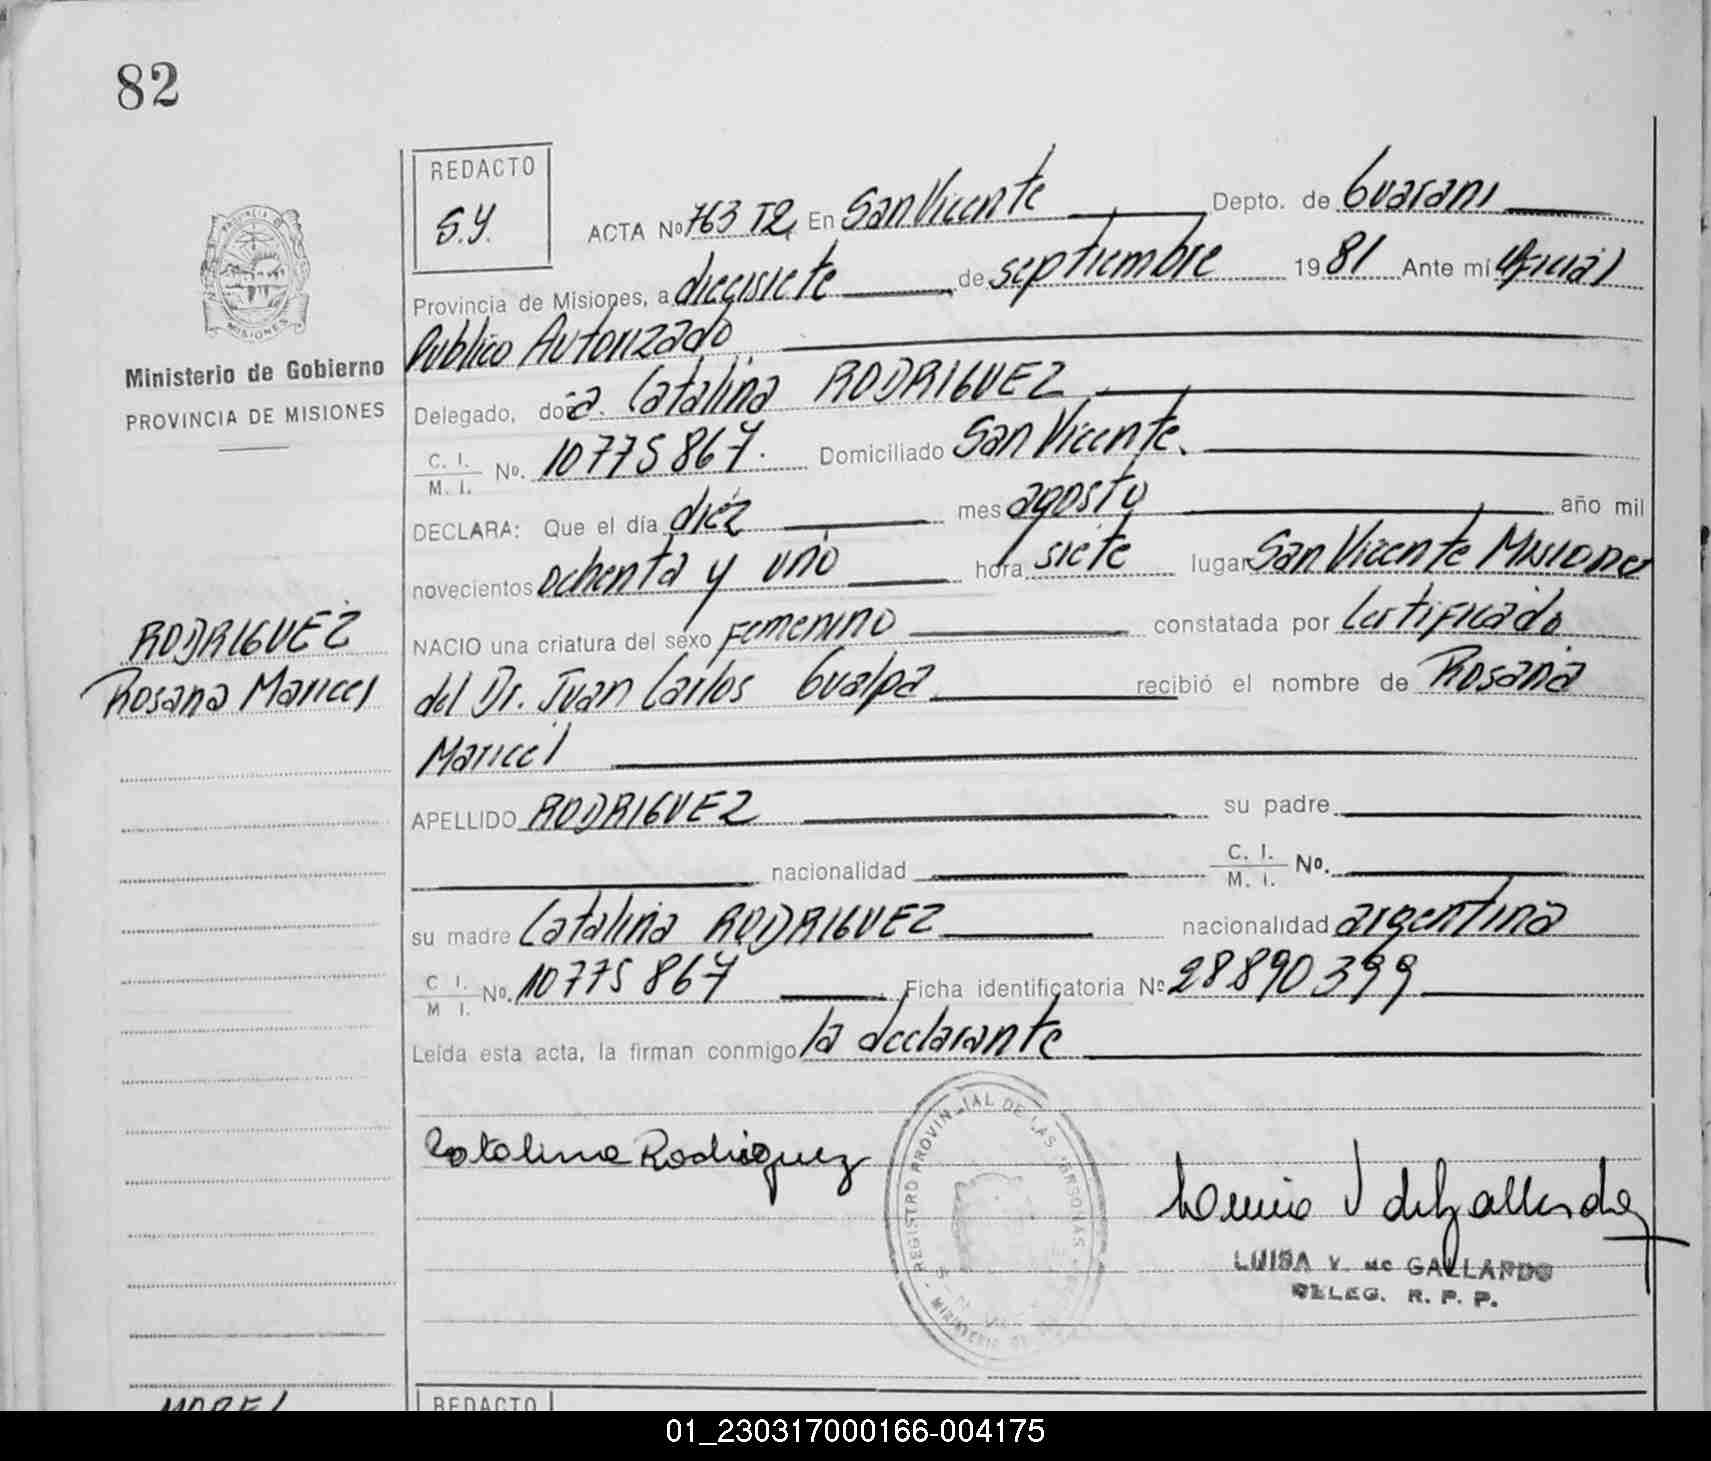 82
REDACTO
S.Y.
ACTA Nº 763 T2, En San Vicente Depto. de Guarani
Provincia de Misiones, a diecisiete de septiembre 1981 Ante mi Oficial
Publico Autorizado
Delegado, doña. Catalina RODRIGUEZ
C. I.
M. I.
No. 10775867. Domiciliado San Vicente.
DECLARA: Que el día diéz mes agosto año mil
novecientos ochenta y uno hora siete lugar San Vicente Misiones
NACIO una criatura del sexo Femenino constatada por Certificado
del Dr. Juan Carlos Gualpa recibió el nombre de Rosana
Maricel
APELLIDO RODRIGUEZ su padre
nacionalidad C. I.
M. I.
Nº.
su madre Catalina RODRIGUEZ nacionalidad argentina
C I.
M I.
No. 10775867 Ficha identificatoria Nº 28890399
Leída esta acta, la firman conmigo la declarante
Catalina Rodriguez
LUISA V. de GALLARDO
DELEG. R. P. P.
REGISTRO PROVINCIAL DE LAS PERSONAS
PROVINCIA DE
MISIONES
Ministerio de Gobierno
PROVINCIA DE MISIONES
RODRIGUEZ
Rosana Maricel
REDACTO
01_230317000166-004175